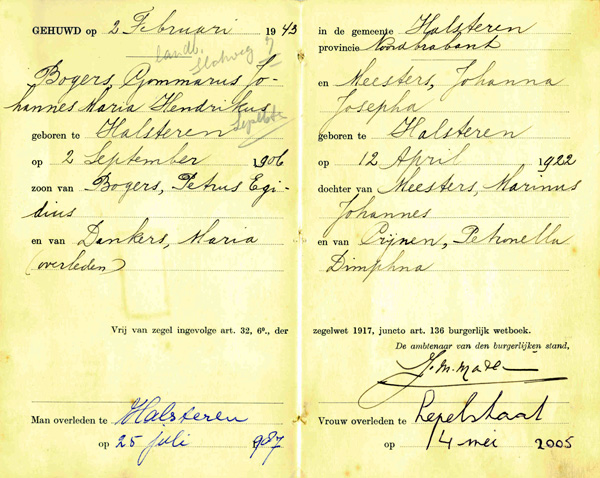 GEHUWD op 2 Februari 1943
landb.
Bogers, Gommarus Jo-
hannes Maria Hendrikus
geboren te Halsteren
op 2 September 1906
zoon van Bogers, Petrus Egi-
dius
en van Dankers, Maria
(overleden)
Vrij van zegel ingevolge art. 32, 6°., der
Man overleden te Halsteren
op 25 juli 1987
in de gemeente Halsteren
provincie Noordbrabant
en Meesters, Johanna
Josepha
geboren te Halsteren
op 12 April 1922
dochter van Meesters, Marinus
Johannes
en van Crijnen, Petronella
Dimphna
zegelwet 1917, juncto art. 136 burgerlijk wetboek.
De ambtenaar van den burgerlijken stand,
Vrouw overleden te Lepelstraat
op 4 mei 2005